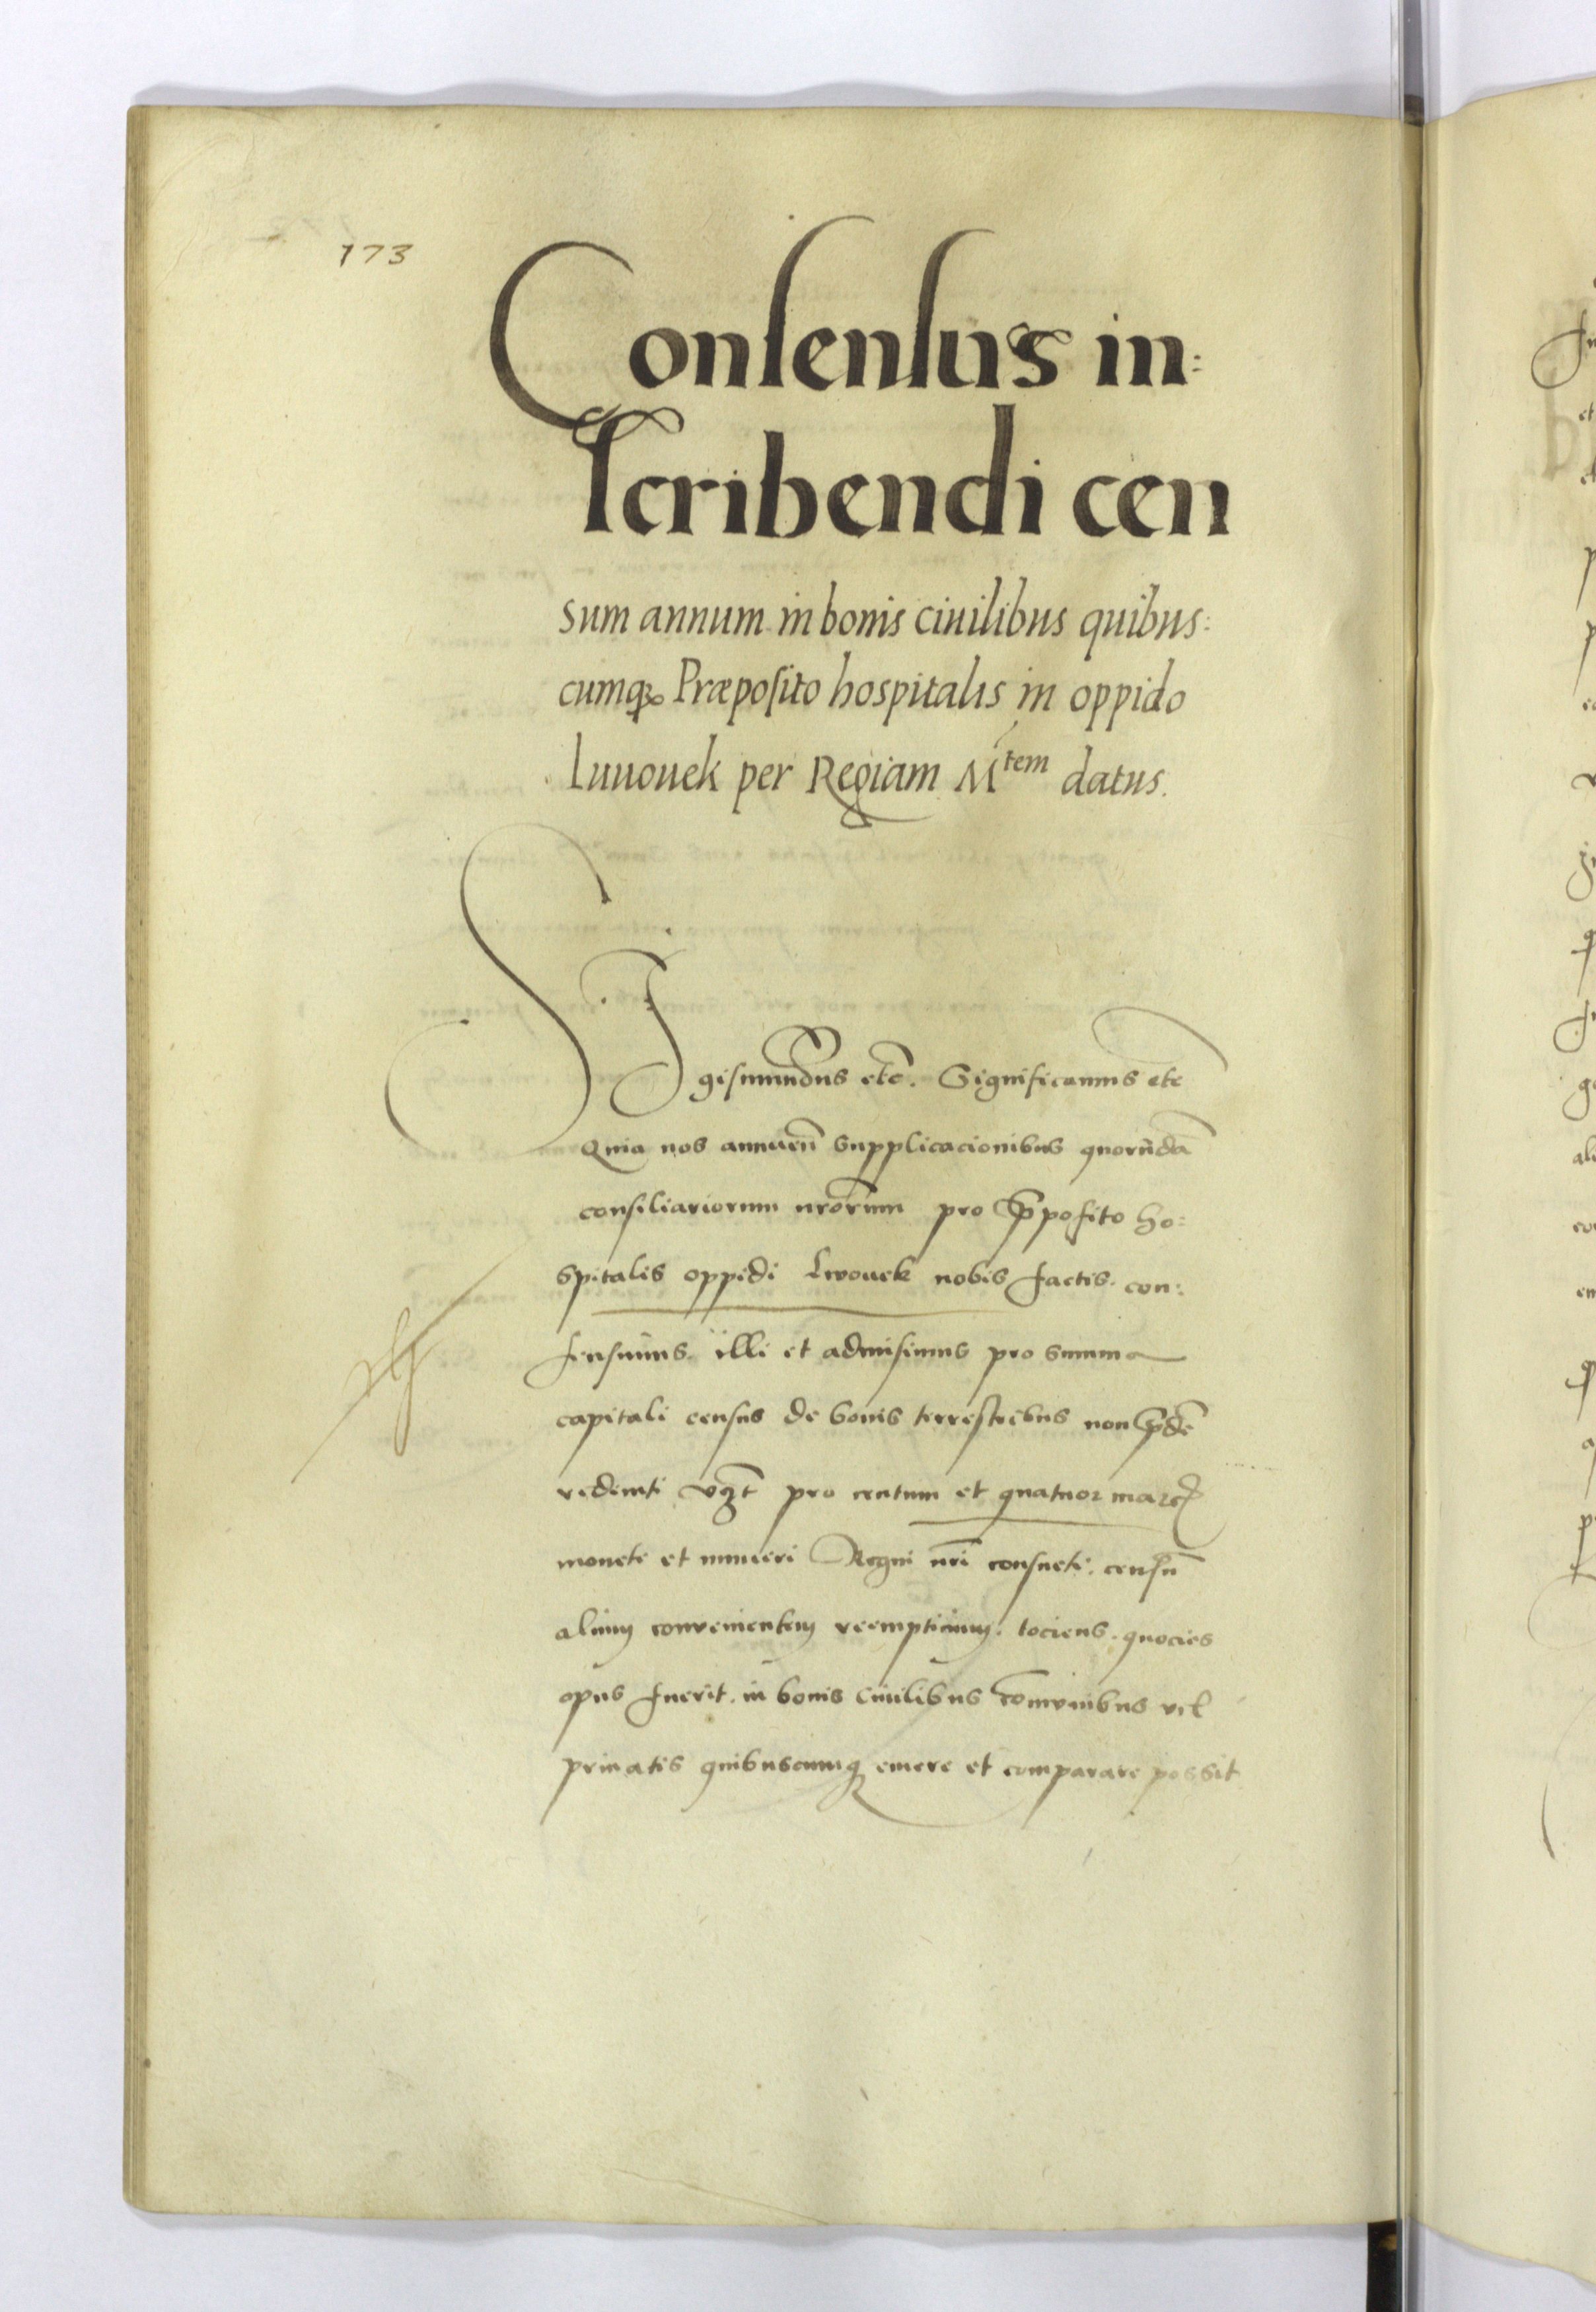 173
Consensus in:
scribendi cen
sum annum in bonis ciuilibus quibus:
cumq₃ Præposito hospitalis in oppido
Luuouek per Regiam M^tem datus.
SIgismundus etc̄. Significamus etc
Quia nos annuen̄ supplicacionibus quorūdā
consiliariorum nrōrum pro p̄posito ho:
spitalis oppidi Lwouek nobis factis. con:
sensimus. illi et admisimus pro summa
capitali census de bonis terrestribus non p̄dē
redemti vꝫt pro centum et quatuor marcꝭ
moneti et numeri Regni nrī consueti. censū
alium convenientem reemptionum. tociens. quocies
opus fuerit. in bonis Ciuilibus com̄unibus vel
priuatis quibuscumqꝫ emere et comparare possit